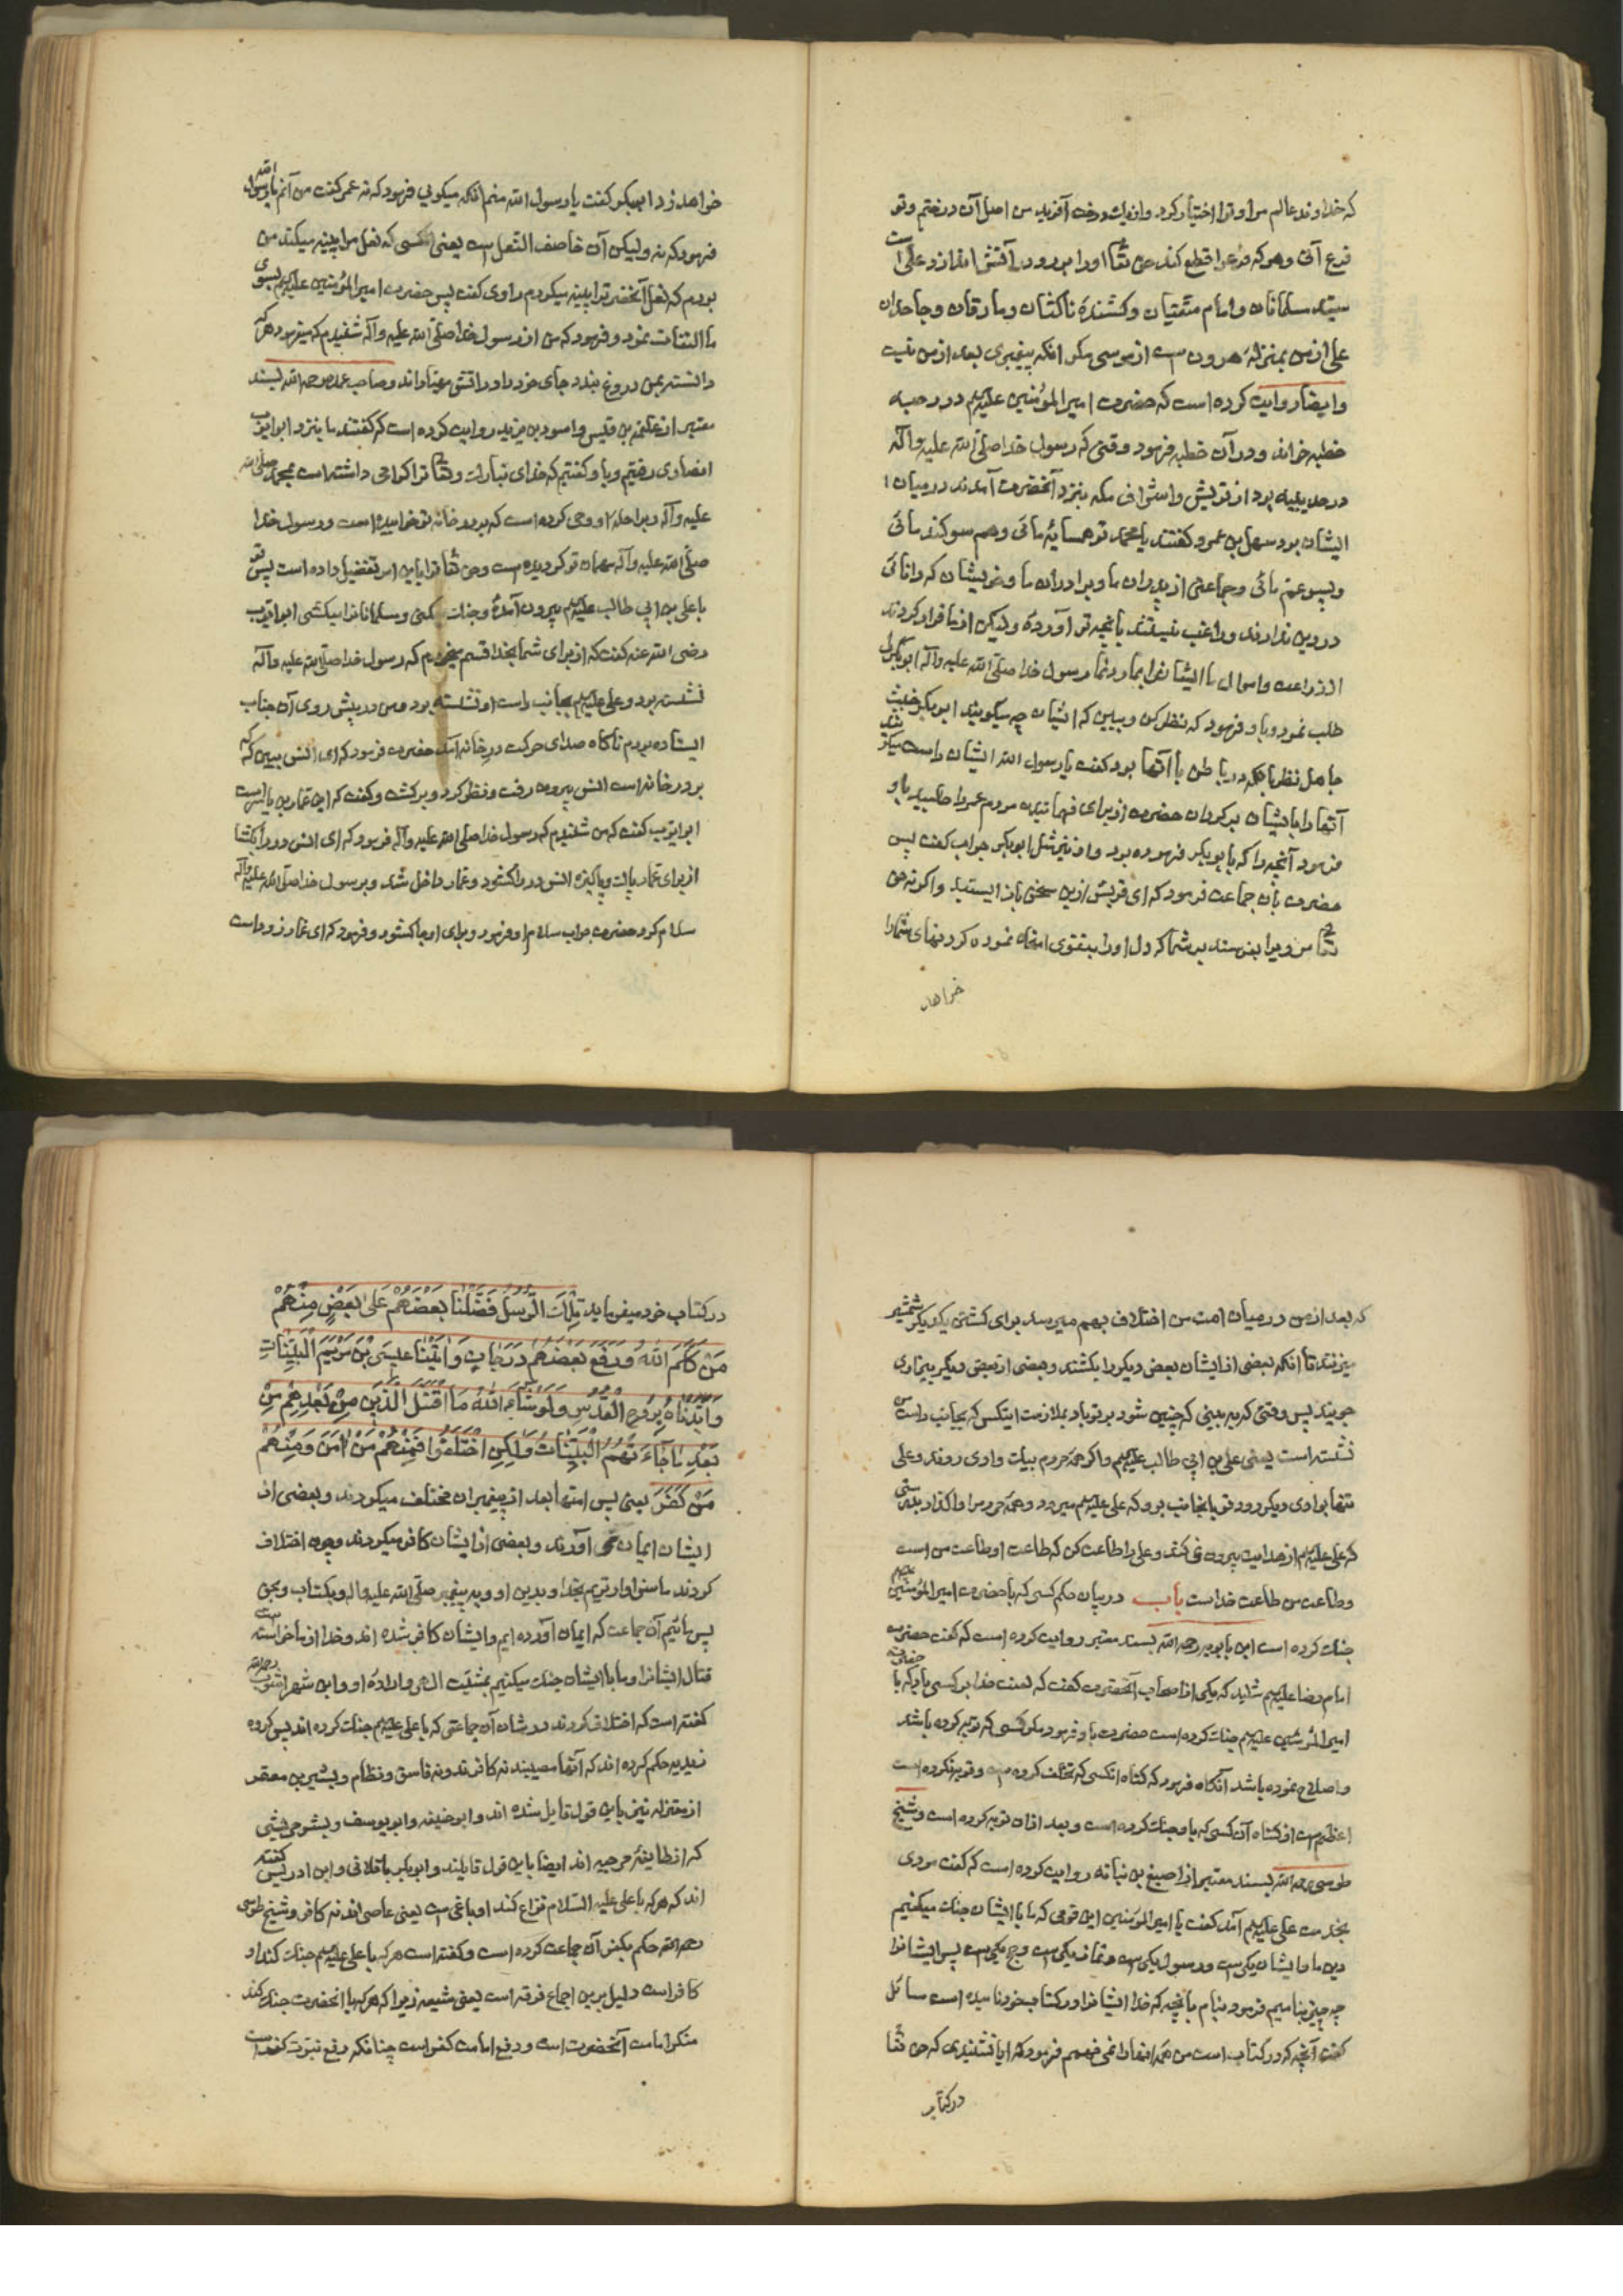 که خداوند عالم من او ترا اختیار کرد و از یک درخت آفرید من اصل آن درختم و تو
فرع آنی و هر که فرع را قطع کند حق تعا او را برو در آتش اندازد و علی است
سید مسلمانان و امام متقیان و کشندهٔ ناکثان و مارقان و جاحدان
علی از من بمنزلهٔ هرون است از موسی مکر آنکه پیغمبری بعد از من نیست
و ایضا روایت کرده است که حضرت امیر المؤمنین علیه‌السلام در رحبه
خطبه خواند و در آن خطبه فرمود وقتی که رسول خدا صلی الله علیه و آله
در حدیبیه بود از قریش و اشراف مکه بنزد آنحضرت آمدند در میان
ایشان بود سهل بن عمرو کفتند یا محمد تو همسایهٔ مائی و هم سوکند مائی
و پسر عم مائی و جماعتی از پدران ما و برادران ما و خویشان که دانائی
در دین ندارند و راغب نیستند بانچه تو آوردهٔ ولیکن از ما فرار کردند
از زراعت و اموال ما ایشانرا بما رد نما رسول خدا صلی الله علیه و آله ابوبکر را
طلب نمود و باو فرمود که نظر کن و ببین که ایشان چه میگویند ابوبکر خبیث
جاهل نظر بانکه در باطن با آنها بود کفت یا رسول الله ایشان راست میکویند
آنها را بایشان برکردان حضرت از برای فهمانیدن مردم عمر را طلبید باو
فرمود آنچه را که بابوبکر فرموده بود و او نیز مثل ابوبکر جواب کفت پس
حضرت بان جماعت فرمود که ای قریش ازین سخن باز ایستید و اکر نه حق
تعا مردیرا بفرستد بر شما که دل او را بتقوی امتحان نموده کردنهای شما را
خواهد
خواهد زد ابوبکر کفت یا رسول الله منم انکه میکویی فرمود که نه عمر کفت من آنم یا رسول الله
فرمود که نه ولیکن آن خاصف النعل است یعنی انکسی که نعل مرا پینه میکند من
بودم که نعل آنحضرترا پینه میکردم راوی کفت پس حضرت امیر المؤمنین علیه‌السلام بسوی
ما التفات نمود و فرمود که من از رسول خدا صلی الله علیه و آله شنیدم که میفرمود هر که
دانسته بمن دروغ بندد جای خود را در اتش مهیا داند و صاحب عمده رحمه الله بسند
معتبر از علقمه بن قیس و اسود بن یزید روایت کرده است که کفتند ما بنزد ابو ایوب
انصاری رفتیم و باو کفتیم که خدای تبارک و تعا ترا کرامی داشته است بمحمد صلی الله
علیه و آله و براحلهٔ او وحی کرده است که بر در خانه تو خوابیده است و رسول خدا
صلی الله علیه و آله مهمان تو کردیده است و حق تعا ترا باین امر تفضیل داده است پس تو
با علی بن ابی طالب علیه‌السلام بیرون آمدهٔ و جنک میکنی و مسلمانانرا میکشی ابو ایوب
رضی الله عنه کفت که از برای شما بخدا قسم میخورم که رسول خدا صلی الله علیه و آله
نشسته بود و علی علیه‌السلام بجانب راست او نشسته بود و من در پیش روی آن جناب
ایستاده بودم ناکاه صدای حرکت در خانه آمد حضرت فرمود که ای انس ببین که کیست
بر در خانه است انس بیرون رفت و نظر کرد و برکشت و کفت که این عمار بن یاسر است
ابو ایوب کفت که من شنیدم که رسول خدا صلی الله علیه و آله فرمود که ای انس در را بکشا
از برای عمار پاک و پاکیزه انس در را کشود و عمار داخل شد و برسول خدا صلی الله علیه و آله
سلام کرد حضرت جواب سلام او فرمود و برای او جا کشود و فرمود که ای عمار زود است
که بعد از من در میان امت من اختلاف بهم میرسد برای کشتن یکدیکر شمشیر
میزنند تا آنکه بعضی از ایشان بعض دیکر را بکشند و بعضی از بعض دیکر بیزاری
جویند پس وقتی که ببینی که چنین شود بر تو باد بملازمت اینکس که بجانب راست من
نشسته است یعنی علی بن ابی طالب علیه‌السلام و اکر همهٔ مردم بیک وادی روند و علی
تنها بوادی دیکر رود تو بانجانب برو که علی علیه‌السلام میرود و همهٔ مردم را واکذار بدرستی
که علی علیه‌السلام از هدایت بیرون نمی کند و علی را اطاعت کن که طاعت او طاعت من است
و طاعت من طاعت خداست باب در بیان حکم کسی که با حضرت امیر المؤمنین علیه‌السلام
جنک کرده است ابن بابویه رحمه الله بسند معتبر روایت کرده است که کفت حضرت
امام رضا علیه‌السلام شنید که یکی از اصحاب آنحضرت کفت که لعنت خدا بر کسی باد که با
امیر المؤمنین علیه‌السلام جنک کرده است حضرت باو فرمود مکر کسی که توبه کرده باشد
و اصلاح نموده باشد آنکاه فرمود که کناه انکسی که تخلف کرده است و توبه نکرده است
اعظم است از کناه آن کسی که باو جنک کرده است و بعد از ان توبه کرده است و شیخ
طوسی رحمه الله بسند معتبر از اصبغ بن نباته روایت کرده است که کفت مردی
بخدمت علی علیه‌السلام آمد کفت یا امیر المؤمنین این قومی که ما با ایشان جنک میکنیم
دین ما و ایشان یکی است و رسول یکی است و نماز یکی است و حج یکی است پس ایشانرا
چه چیز بنامیم فرمود بنام بانچه که خدا ایشانرا در کتاب خود نامیده است سائل
کفت آنچه که در کتاب است من همه انها را نمی فهمم فرمود که ایا نشنیدی که حق تعا
در کتاب
در کتاب خود میفرماید تِلْكَ الرُّسُلُ فَضَّلْنَا بَعْضَهُمْ عَلَى بَعْضٍ مِنْهُمْ
مَنْ كَلَّمَ اللهُ وَرَفَعَ بَعْضَهُمْ دَرَجَاتٍ وَاتَيْنَا عِيسَى بْنَ مَرْيَمَ الْبَيِّنَاتِ
وَأَيَّدْنَاهُ بِرُوحِ الْقُدُسِ وَلَوْ شَاءَ اللهُ مَا اقْتَتَلَ الَّذِينَ مِنْ بَعْدِهِمْ مِنْ
بَعْدِ مَا جَاءَتْهُمُ الْبَيِّنَاتُ وَلَكِنِ اخْتَلَفُوا فَمِنْهُمْ مَنْ اٰمَنَ وَمِنْهُمْ
مَنْ كَفَرَ یعنی پس امتها بعد از پیغمبران مختلف میکردند و بعضی از
ایشان ایمان می آورند و بعضی از ایشان کافر میکردند و چون اختلاف
کردند ما سزاوارتریم بخدا و بدین او و به پیغمبر صلی الله علیه و اله و بکتاب و بحق
پس مائیم آن جماعت که ایمان آورده ایم و ایشان کافر شده اند و خدا از ما خواسته است
قتال ایشانرا و ما با ایشان جنک میکنیم بمشیت الهی و ارادهٔ او و ابن شهر اشوب رحمه الله
کفته است که اختلاف کردند در شان آن جماعتی که با علی علیه‌السلام جنک کرده اند پس کروه
زیدیه حکم کرده اند که آنها مصیبند نه کافرند و نه فاسق و نظام و بشیر بن معتمر
از معتزله نیز باین قول قایل شده اند و ابو حنیفه و ابو یوسف و بشر مریسی
که از طایفهٔ مرجیه اند ایضا باین قول قایلند و ابو بکر باقلانی و ابن ادریس کفته
اند که هر که با علی علیه السّلام نزاع کند او باغی است یعنی عاصی اند نه کافر و شیخ طوسی
رحمه الله حکم بکفر آن جماعت کرده است و کفته است هر که با علی علیه‌السلام جنک کند او
کافر است دلیل برین اجماع فرقه است یعنی شیعه زیرا که هر که با انحضرت جنک کند
منکر امامت آنحضرت است و دفع امامت کفر است چنانکه دفع نبوت کفر است